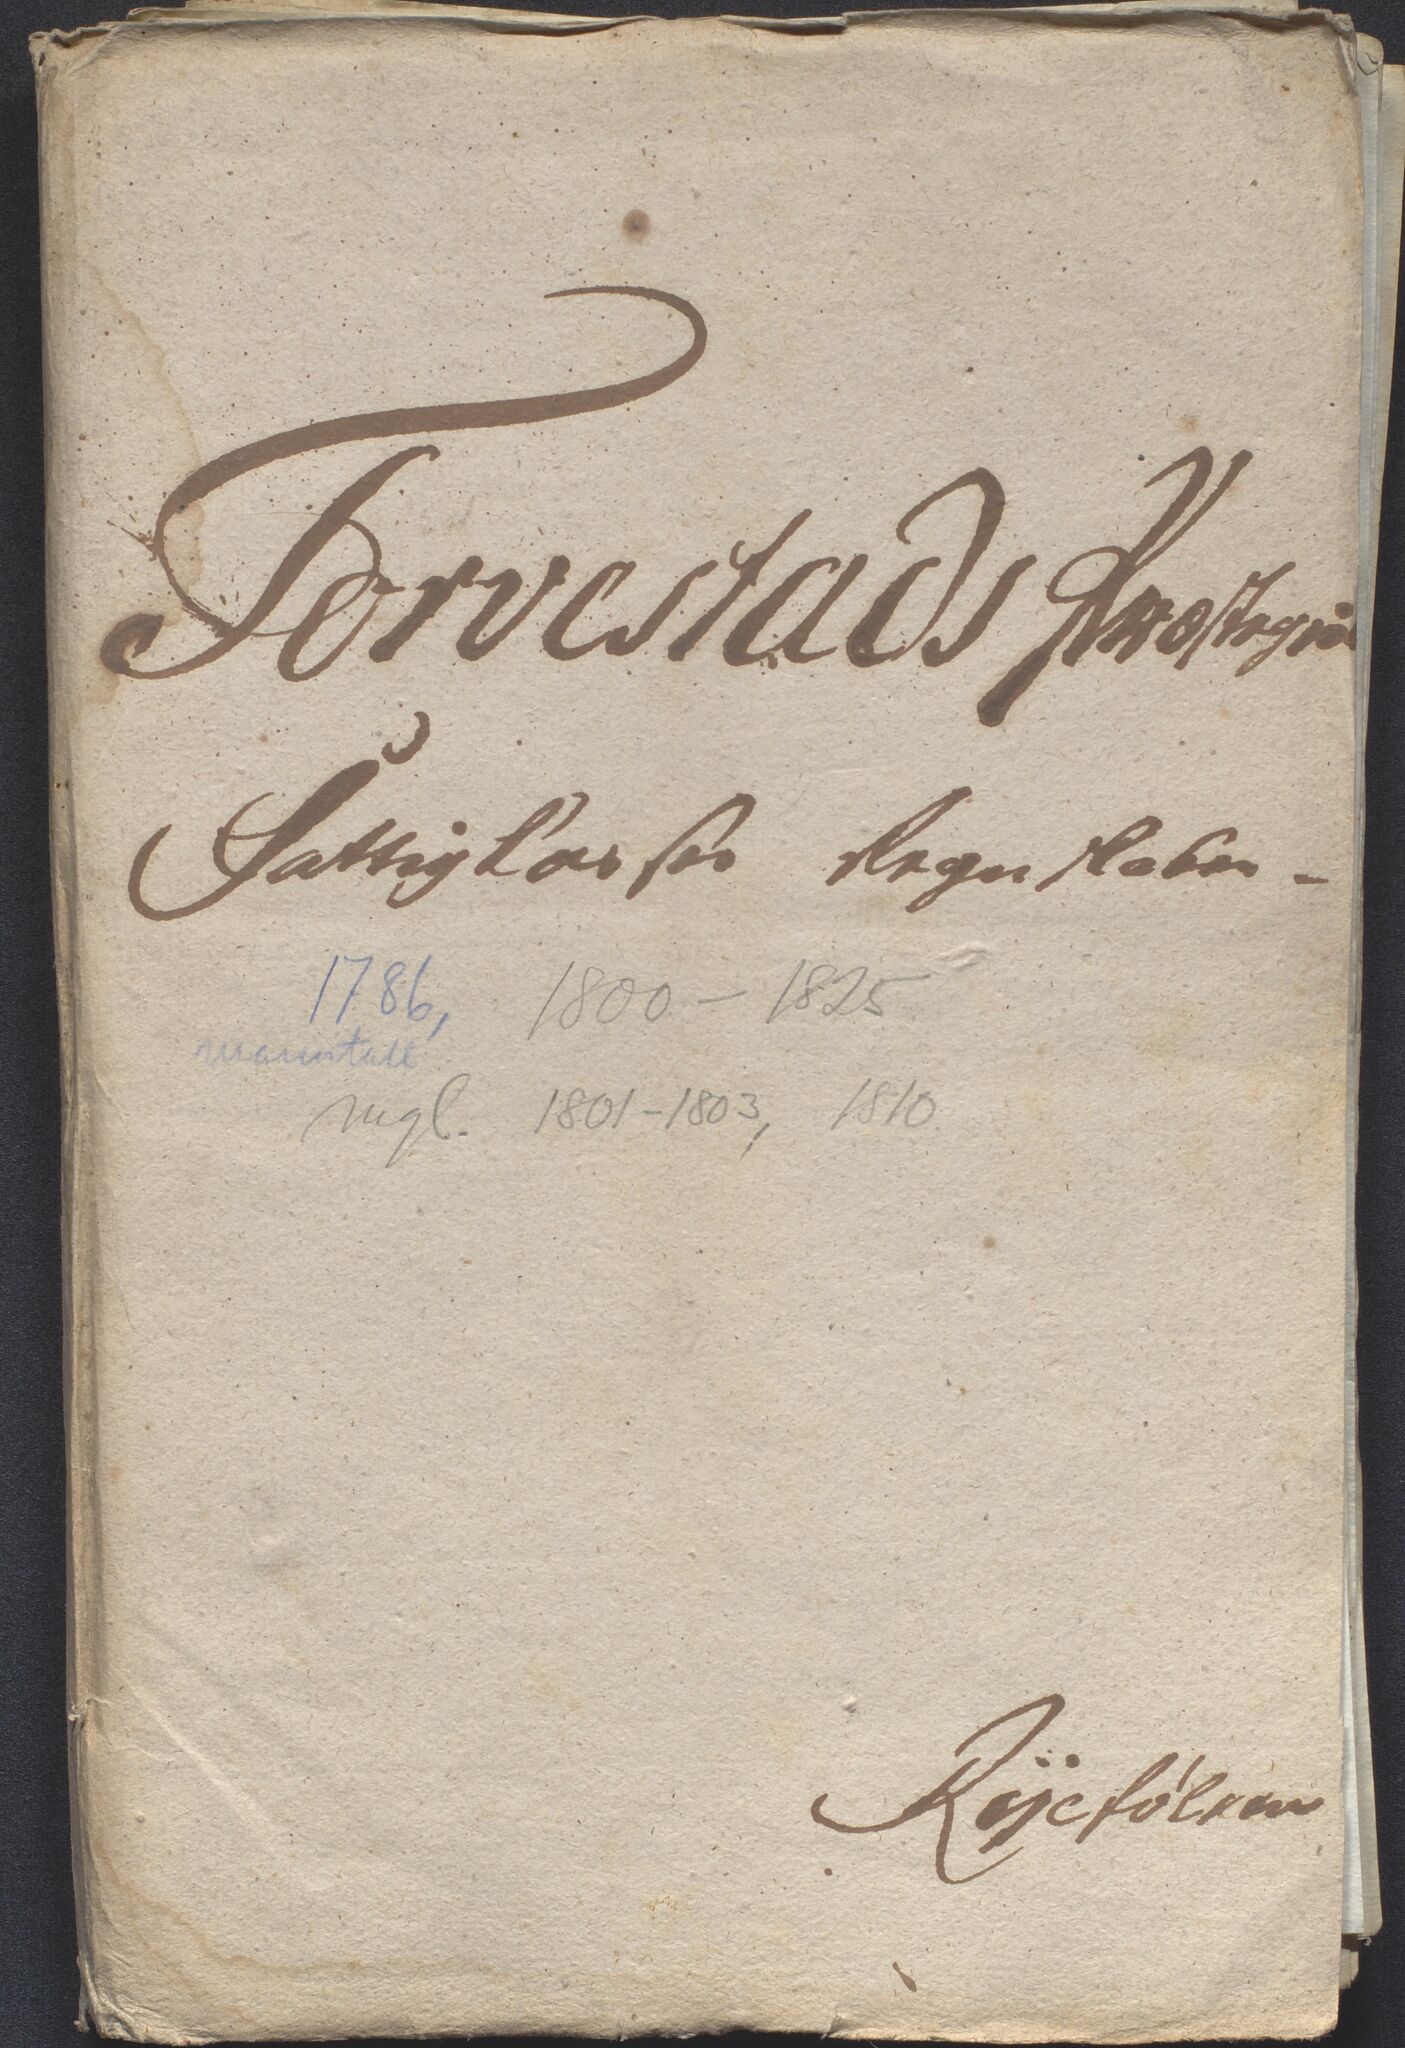 Torvestads Præstegiæl
Fattig Casses Regnskaber -
1786, 1800 - 1825
manntall
mgl. 1801-1803, 1810